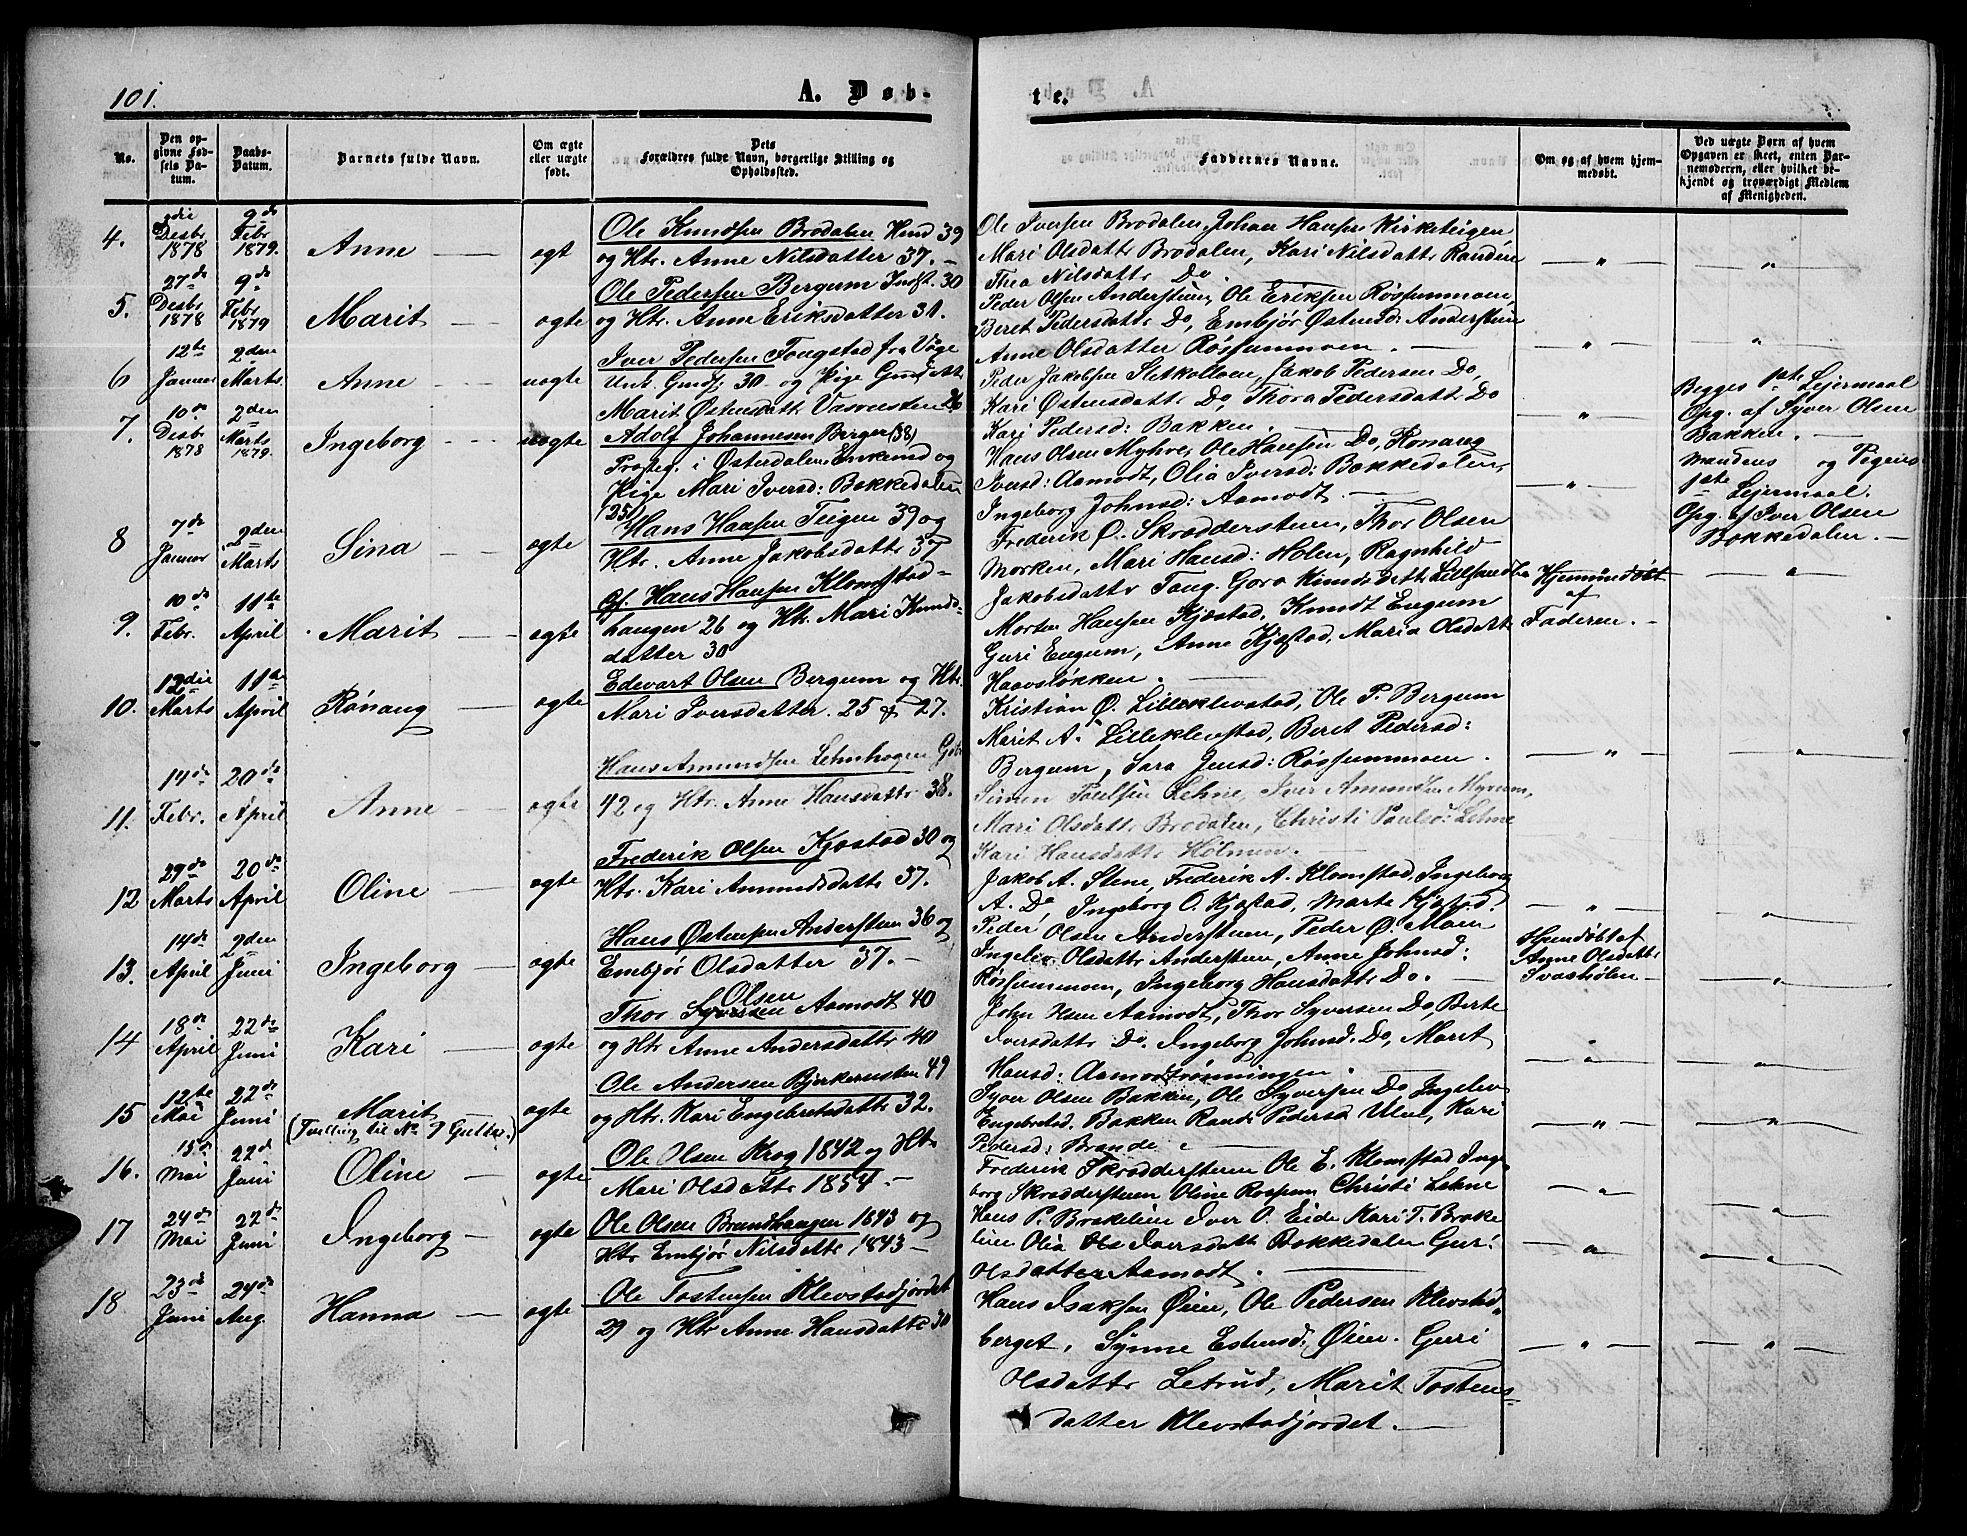 101.
A. Døb-
te.
No.
Den op-
givne Fød-
sels Da-
tum.
Daabs-
Datum.
Barnets fulde Navn.
Om ægte
eller uægte
født.
Dets
Forældres fulde Navn, borgerlige Stilling og
Opholdssted.
Faddernes Navne.
Om og af hvem hjem-
medøbt.
Ved uægte Børn af hvem
Opgaven er skeet, enten Bar-
nemoderen, eller hvilket be-
kjendt og troværdigt Medlem
af Menigheden.
4.
2die
Desbr
1878
9de
Febr
1879.
Anne
ægt
Ole Knudsen Brodalen Hmd 39
og Htr. Anne Nilsdatter 37. —
Ole Iversen Brodalen, Johan Hansen Kirketeigen
Mari Olsdattr Brodalen, Kari Nilsdattr Randen
Thea Nilsdattr Do.
5.
27de
Desbr
1878
9de
Febr
1879
Marit
ægte
Ole Pedersen Bergum Indst. 30
og Htr. Anne Eriksdatter 31.
Peder Olsen Anderstuen, Ole Eriksen Røssummoen,
Beret Pedersdattr Do, Embjør Østensd: Anderstuen
Anne Olsdatter Røssummoen. —
6
12te
Januar
2den
Marts
Anne
uægte
Iver Pedersen Fougstad fra Vaage
Unk. Gmdsj. 30 og Pige
Marit Østensdattr 26
Peder Jakobsen Sletkolloen, Jakob Pedersen Do,
Kari Østensdattr Do, Thora Pedersdattr Do
Kari Pedersd: Bakken. —
Begges 1ste Lejermaal
Opg. af Syver Olsen
Bakken. —
7.
10de
Desbr
1878
2den
Marts
1879.
Ingeborg
uægte
Adolf Johannesen Berger (38)
i Østerdalen Enkemd og
Pige Mari Iversd: Bakkedalen
(25)
Hans Olsen Myhre, Ole Hansen Do, Rønnaug
Iversd: Aamodt, Olia Iversd: Bakkedalen,
Ingeborg Johnsd: Aamodt. —
Mandens og Pigens
1ste Lejermaal.
Opg. af Iver Olsen
Bakkedalen. —
8
7de
Januar
2den
Marts
Sina
ægte
Hans Hansen Teigen 39 og
Htr. Anne Jakobsdattr 37
Frederik O. Skrædderstuen, Thor Olsen
Morken, Mari Hansd: Holen, Ragnhild
Jakobsdatter Taug.
9.
10de
Febr.
11te
April
Marit
ægte
Gf. Hans Hansen Klomstad-
haugen 26 og Htr. Mari Knuds-
datter 30
Morten Hansen Kjæstad, Knudt Engum
Guri Engum, Anne Kjæstad, Maria Olsdattr
Haavsløkken.
Hjemmedøbt
af
Faderen. —
10.
12die
Marts
11te
April
Rønaug
ægte
Edevart Olsen Bergum og Htr.
Mari Iversdatter. 25 & 27.
Kristian Ø. Lilleklevstad, Ole P. Bergum
Marit A. Lilleklevstad, Beret Pedersd:
Bergum, Sara Jensd: Røssummoen.
11.
14de
Febr.
20de
April
Anne
ægte
Hans Amundsen Lehnhagen Gbr
42 og Htr. Anne Hansdattr 38.
Simen Poulsen Lehne, Iver Amundsen Myrum,
Mari Olsdattr Brodalen, Christi Poulsd: Lehne
Kari Hansdattr Holmen.
12
29de
Marts
20de
April
Oline
ægte
Frederik Olsen Kjæstad 30 og
Htr. Kari Amundsdattr 37.
Jakob A. Stene, Frederik A. Klomstad, Ingeborg
A. Do Ingeborg O. Kjæstad, Marte Kjæstad.
13.
14de
April
2den
Juni
Ingeborg
ægte
Hans Østensen Anderstuen 36 og
Embjør Olsdatter 37. —
Peder Olsen Anderstuen, Peder O. Moen
Ingelev Olsdattr Anderstuen, Anne Johnsd:
Røssummoen, Ingeborg Hansdattr Do. —
Hjemdøbt af
Anne Olsdattr
Svashølen —
14
18de
April
22de
Juni
Kari
ægte
Olsen
Thor Syversen Aamodt 40
og Htr Anne Andersdattr 40
John Olsen Aamodt, Thor Syversen Do, Berte
Iversdattr Do. Ingeborg Johnsd. Do, Marit
Hansd: Aamodtrønningen.
15
12te
Mai
22de
Juni
Marit
(Tvilling til No 9 Guttes.)
ægte
Ole Andersen Bjerkerusten 49
og Htr. Kari Engebretsdattr 32.
Syver Olsen Bakken, Ole Syversen Do Ingelev
Engebretsd. Bakken Randi Pedersd Ulen, Kari
Pedersd: Brande. —
16.
15de
Mai
22de
Juni
Oline
ægte
Ole Olsen Krog 1842 og Htr
Mari Olsdattr 1854. —
Frederik Skrædderstuen Ole E. Klomstad Inge-
borg Skrædderstuen Oline Rossum Christi Lehne
17
24de
Mai
22de
Juni
Ingeborg —
ægte
Ole Olsen Brandhaugen 1843 og
Htr Embjør Nilsdattr 1843 —
Hans P. Brakelien Iver O. Eide Kari T. Brake
lien Olia Iversdattr Bakkedalen Guri
Olsdatter Aamodt. —
18
23de
Juni
24de
Aug.
Hanna —
ægte
Ole Tostensen Klevstadjordet
29 og Htr Anne Hansdattr 30
Hans Isaksen Øien, Ole Pedersen Klevstad-
berget, Synne Estensd: Øien. Guri
Olsdattr Letrud, Marit Tostens-
datter Klevstadjordet. —